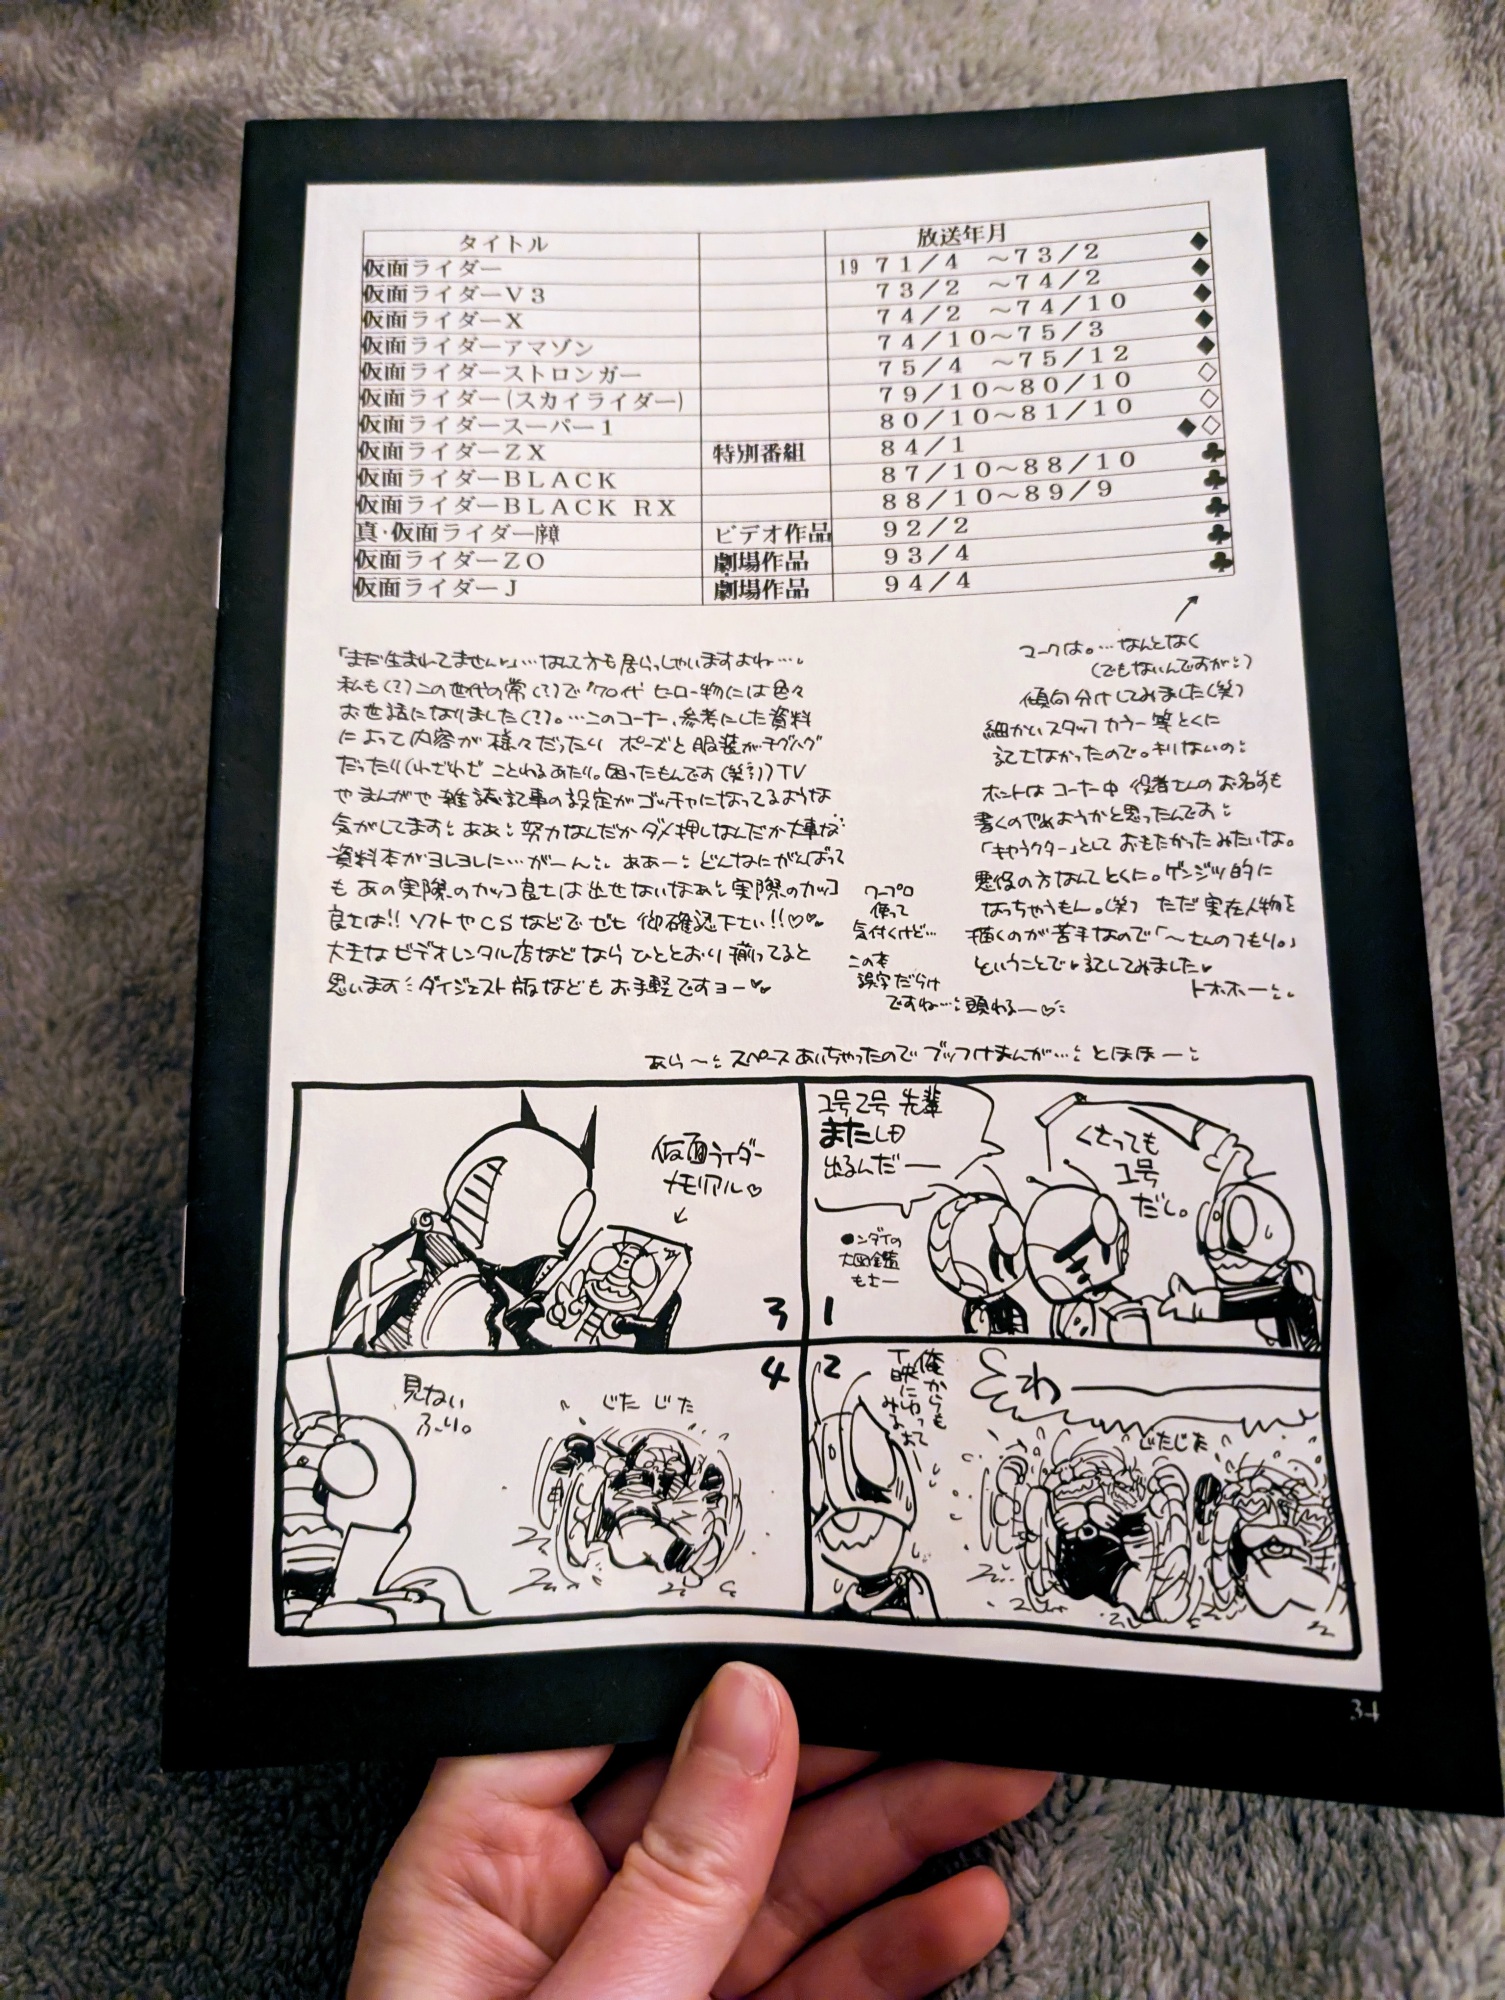 タイトル 放送年月
仮面ライダー 1971/4 ～73/2 ◆
仮面ライダーV3 73/2 ～74/2 ◆
仮面ライダーX 74/2 ～74/10 ◆
仮面ライダーアマゾン 74/10～75/3 ◆
仮面ライダーストロンガー 75/4 ～75/12 ◆
仮面ライダー(スカイライダー) 79/10～80/10 ◇
仮面ライダースーパー1 80/10～81/10 ◇
仮面ライダーZX 特別番組 84/1 ◆◇
仮面ライダーBLACK 87/10～88/10 ♣
仮面ライダーBLACK RX 88/10～89/9 ♣
真・仮面ライダー序章 ビデオ作品 92/2 ♣
仮面ライダーZO 劇場作品 93/4 ♣
仮面ライダーJ 劇場作品 94/4 ♣
「まだ生まれてません」…なんて方も居らっしゃいますよね…
私も(?)この世代の常(?)で'70代 ヒーロー物には色々
お世話になりました(?)。…このコーナー、参考にした資料
によって内容が様々だったり ポーズと服装がチグハグ
だったり(わざわざ ことわるあたり。困ったもんです(笑))TV
やまんがや雑誌記事の設定がゴッチャになってるような
気がしてます ああ 努力なんだかダメ押しなんだか大事な
資料本がヨレヨレに…がーん ああー どんなにがんばって
も あの実際のカッコ良さは出せないなあ 実際のカッコ
良さは!! ソフトやCSなどでぜひ御確認下さい!!♡♡
大きなビデオレンタル店などならひととおり揃ってると
思います ダイジェスト版などもお手軽ですヨー♡
マークは。…なんとなく
(でもないんですが)
傾向分けしてみました(笑)
細かいスタッフカラー等とくに
記さなかったので。キリないの
ホントはコーナー中 役者さんのお名前も
書くのやめようかと思ったんです
「キャラクター」としておもたかったみたいな。
悪役の方なんてとくに。ゲンジツ的に
なっちゃうもん。(笑) ただ実在人物を
描くのが苦手なので「～さんのつもり。」
ということで記してみました
トホホー
ワープロ
使って
気付くけど…
この本
誤字だらけ
ですね… 頭わるー♡
あら～ スペースあいちゃったのでブッつけまんが… とほほー
1号2号 先輩
またしも
出るんだー
●ンダイの
大図鑑
もさー
くさっても
1号
だし。
1
俺からも
T映にゆって
みよおー
ざわ
じたじた
2
仮面ライダー
メモリアル♡
3
見ない
ふーり。
じた じた
4
34